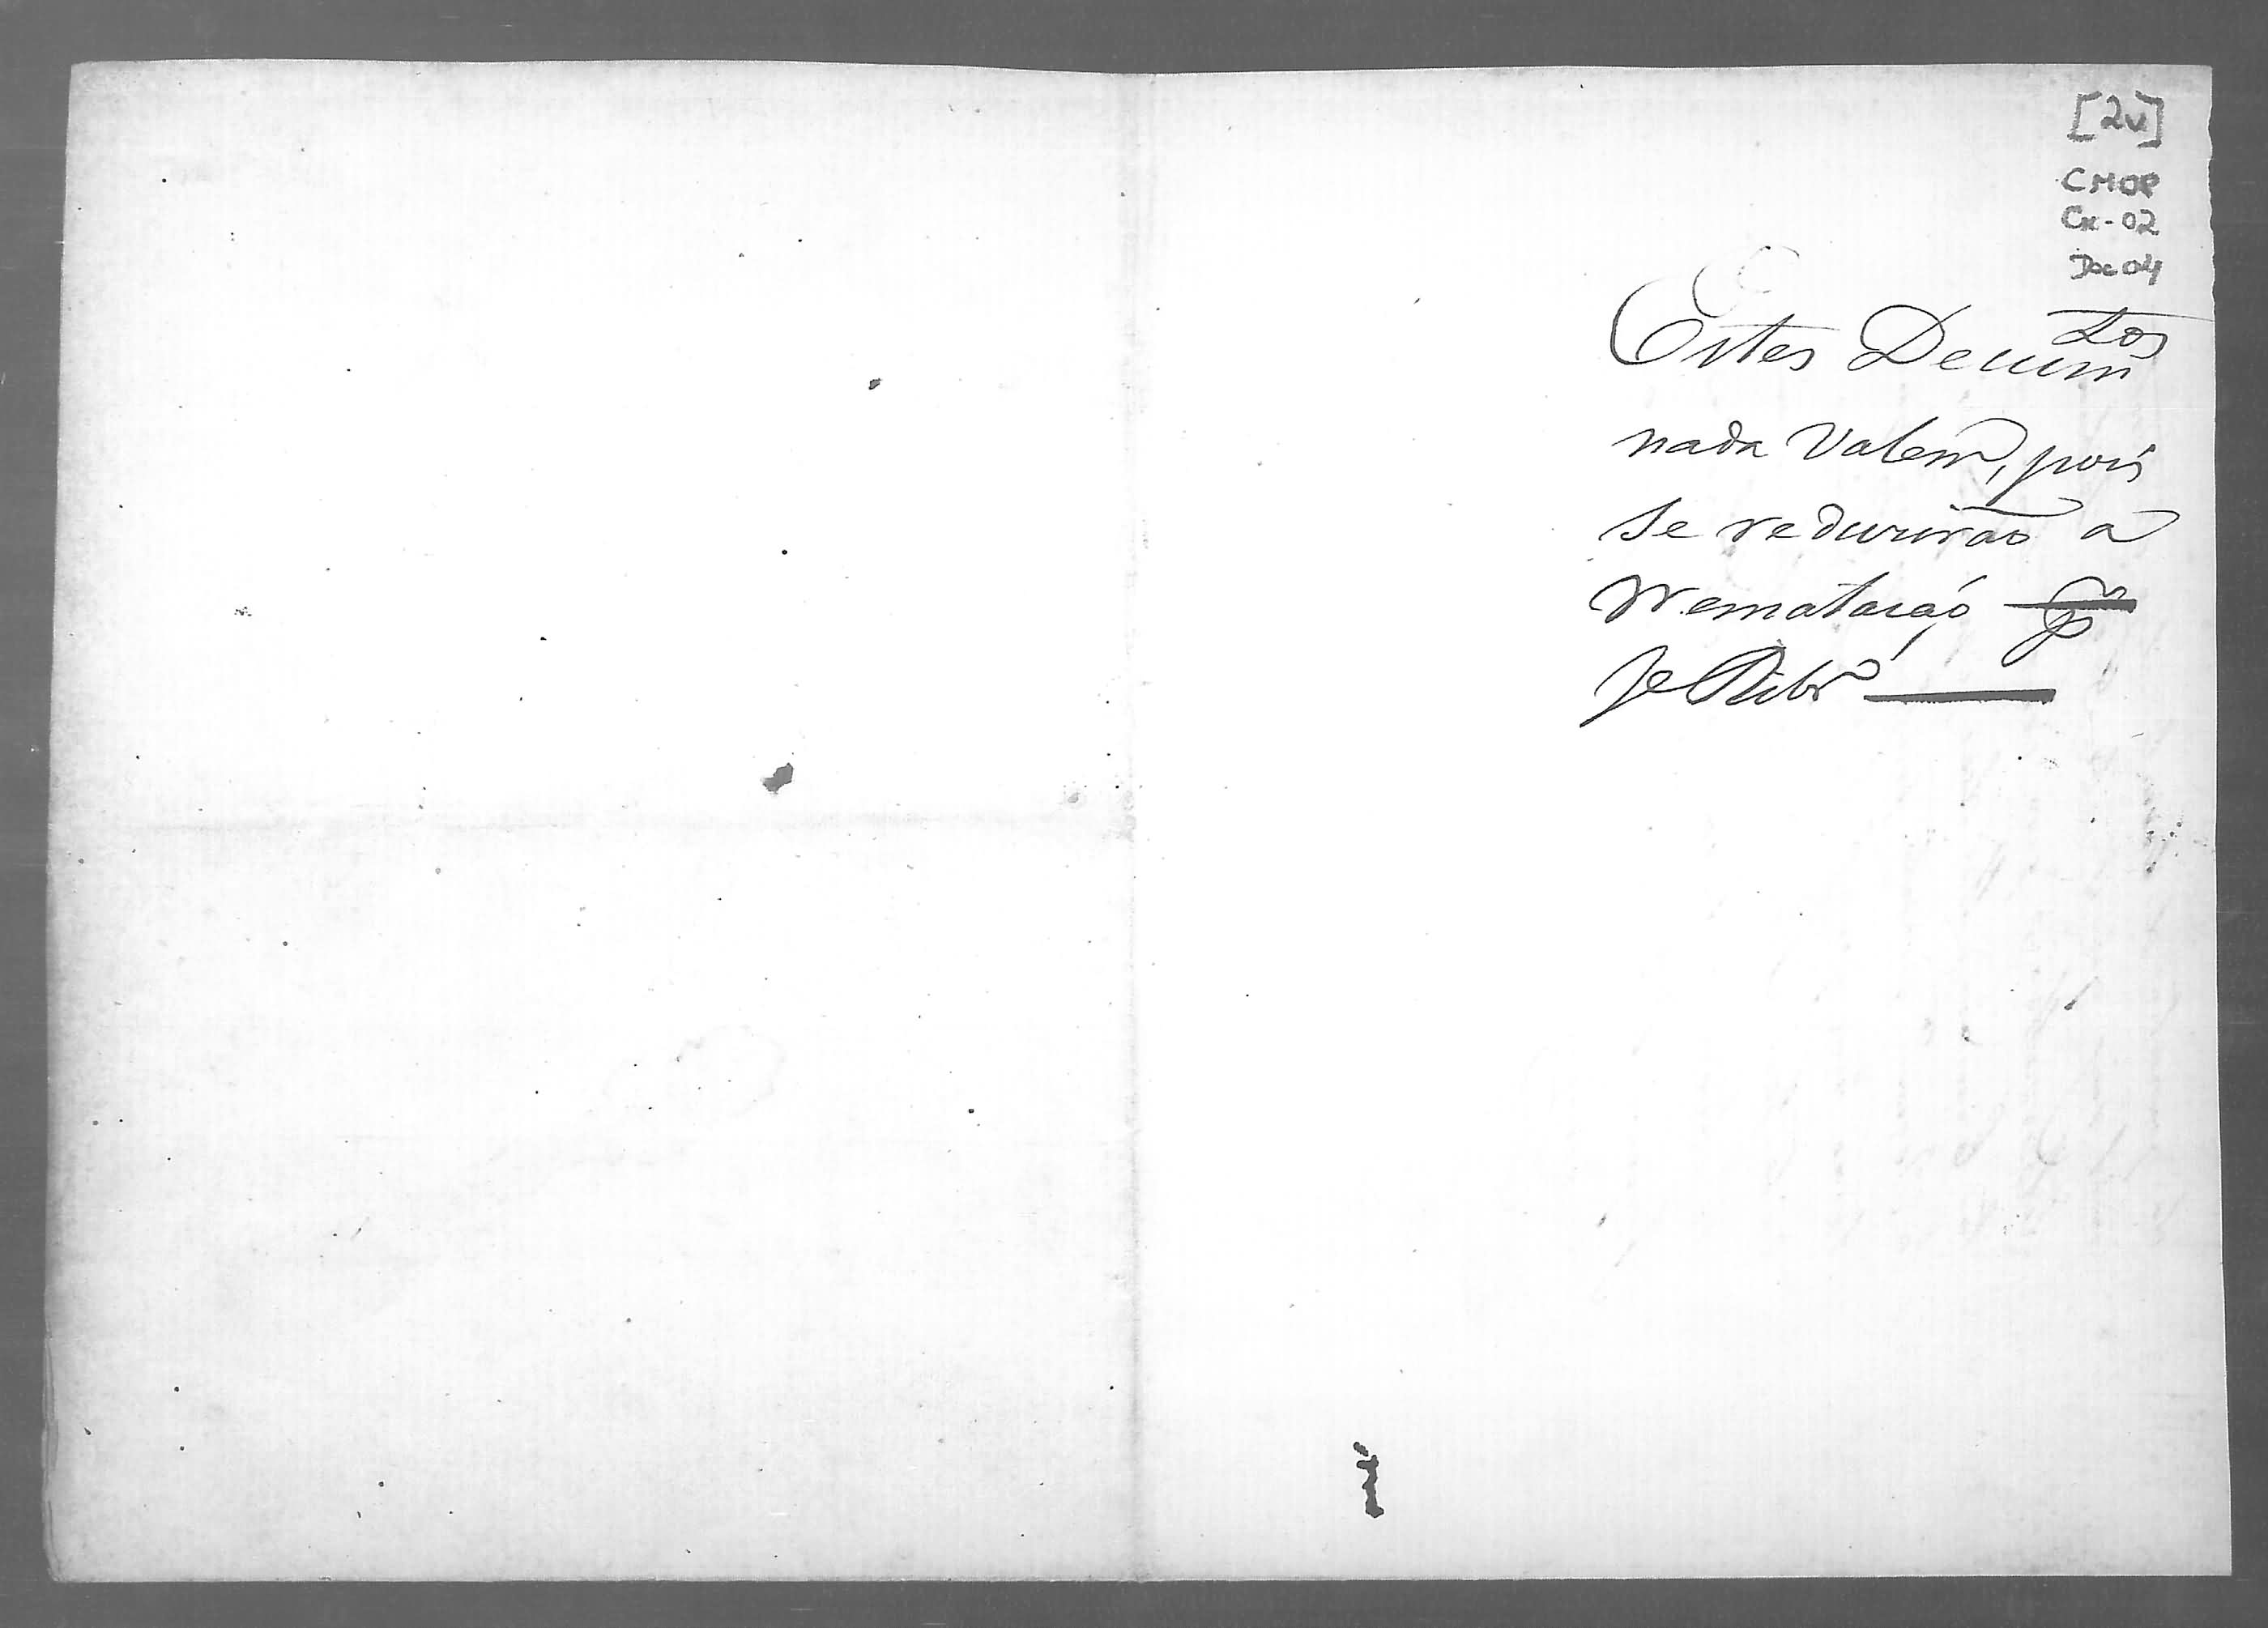 [2v]
CMOP
Cx-02
Doc 04
Estes Decum^tos
nada Valem, pois
se reduzirão a
rrematação